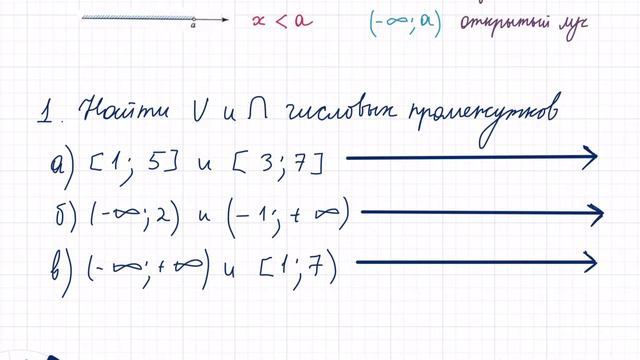 a x < a (-∞; a) открытый луч
1. Найти ∪ и ∩ числовых промежутков
а) [1; 5] и [3; 7]
б) (-∞; 2) и (-1; +∞)
в) (-∞; +∞) и [1; 7)